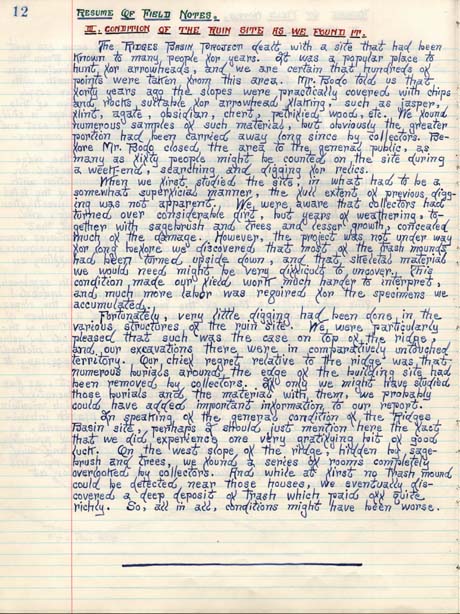 12
RESUME OF FIELD NOTES.
II. CONDITION OF THE RUIN SITE AS WE FOUND IT.
The RIDGES BASIN PROJECT dealt with a site that had been
known to many people for years. It was a popular place to
hunt for arrowheads, and we are certain that hundreds of
points were taken from this area. Mr. Bodo told us that
forty years ago the slopes were practically covered with chips
and rocks, suitable for arrowhead flaking, such as jasper,
flint, agate, obsidian, chert, petrified wood, etc. We found
numerous samples of such material, but obviously the greater
portion had been carried away long since by collectors. Be-
fore Mr. Bodo closed, the area to the general public, as
many as fifty people might be counted on the site during
a week-end, searching and digging for relics.
When we first studied the site, in what had to be a
somewhat superficial manner, the full extent of previous digg-
ing was not apparent. We were aware that collectors had
turned over considerable dirt, but years of weathering, to-
gether with sagebrush and trees and lesser growth, concealed
much of the damage. However, the project was not under way
for long before we discovered that most of the trash mounds
had been turned upside down, and that skeletal material
we would need might be very difficult to uncover. This
condition made our field work much harder to interpret,
and much more labor was required for the specimens we
accumulated.
Fortunately, very little digging had been done in the
various structures of the ruin site. We were particularly
pleased that such was the case on top of the ridge,
and our excavations there were in comparatively untouched
territory. Our chief regret relative to the ridge was that
numerous burials around the edge of the building site had
been removed by collectors. If only we might have studied
those burials and the material with them, we probably
could have added important information to our report.
In speaking of the general condition of the Ridges
Basin site, perhaps I should just mention here the fact
that we did experience one very gratifying bit of good
luck. On the west slope of the ridge, hidden by sage-
brush and trees, we found a series of rooms completely
overlooked by collectors. And while at first no trash mound
could be detected near those houses, we eventually dis-
covered a deep deposit of trash which paid off quite
richly. So, all in all, conditions might have been worse.